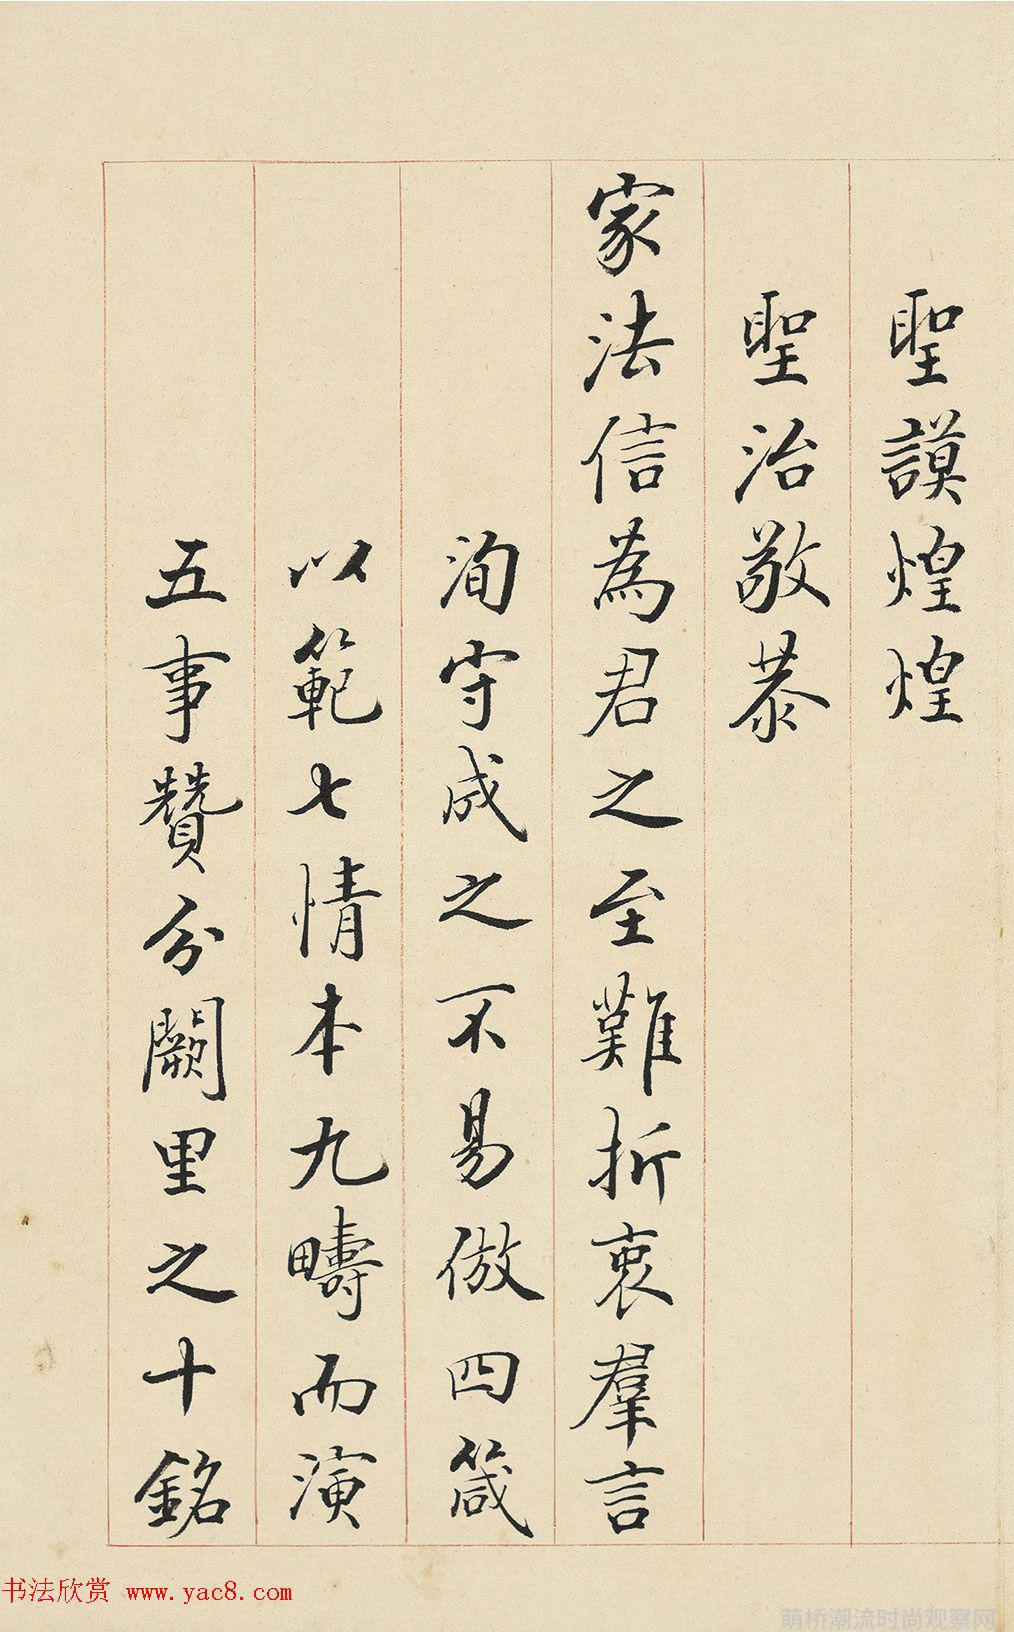 聖謨煌煌
聖治敬恭
家法信為君之至難折衷羣言
洵守成之不易倣四箴
以範七情本九疇而演
五事贊分闕里之十銘
书法欣赏 www.yac8.com
萌桥潮流时尚观察网